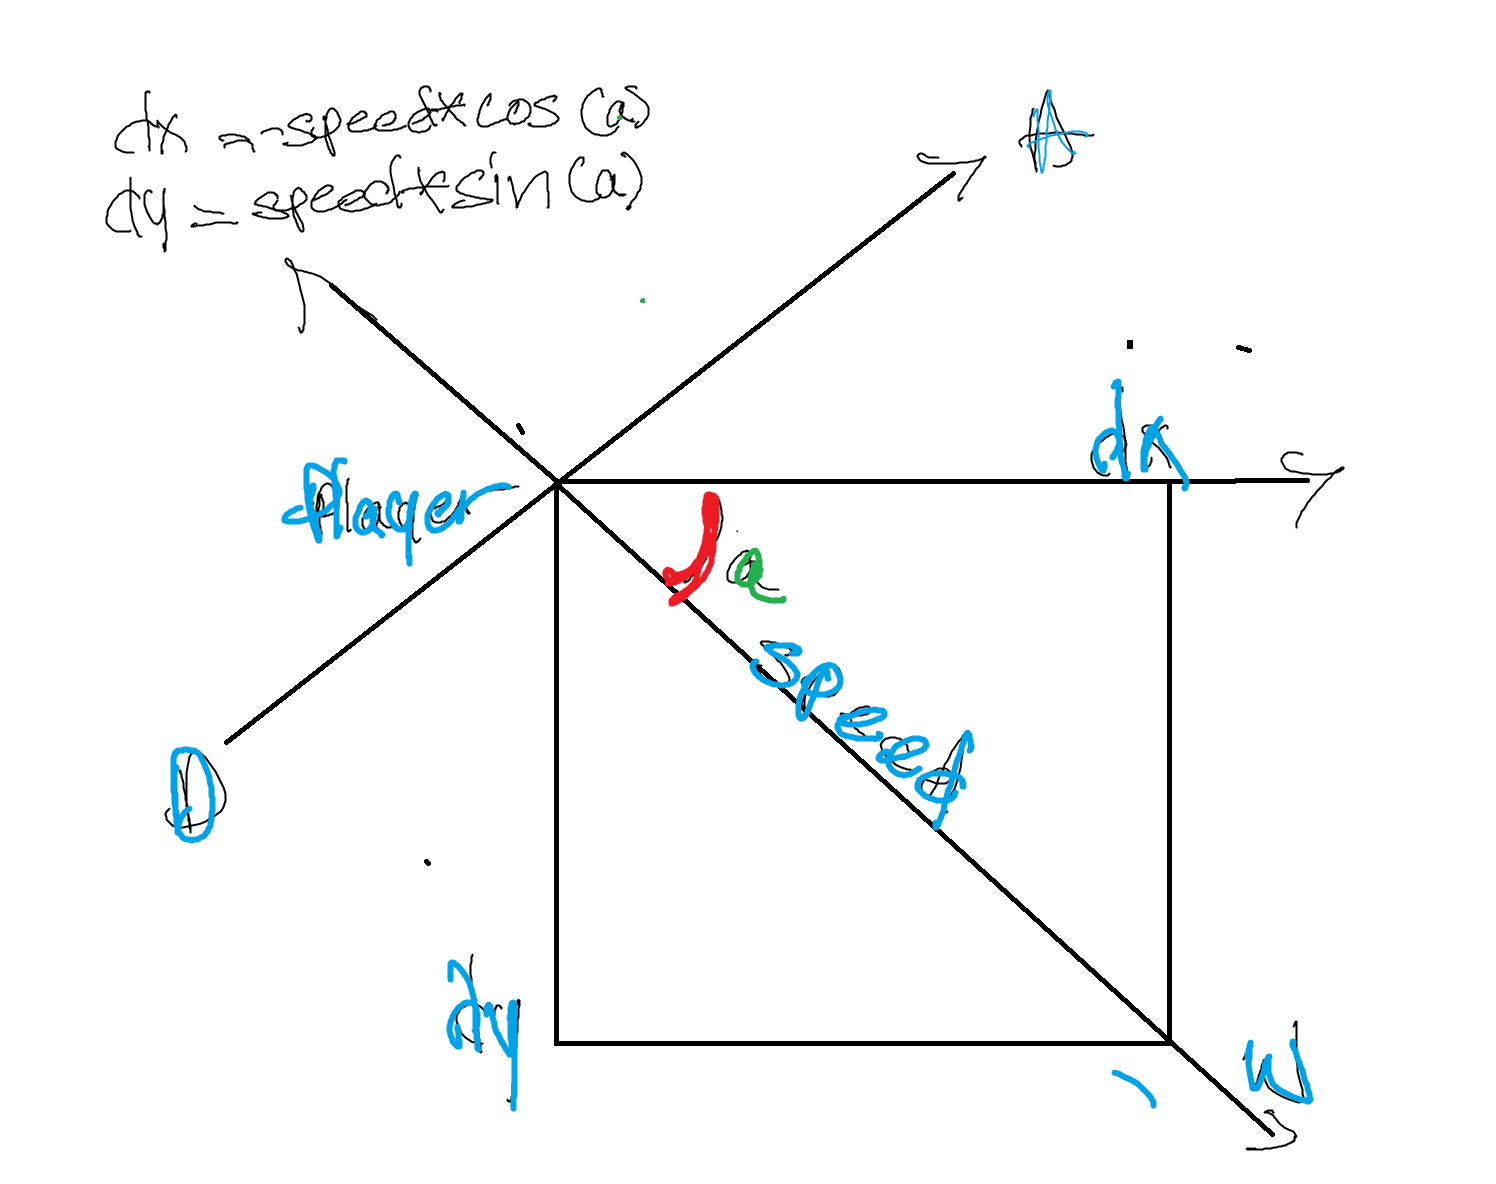 dx = -speed*cos(a)
dy = speed*sin(a)
A
dx
Player
a
speed
D
dy
W